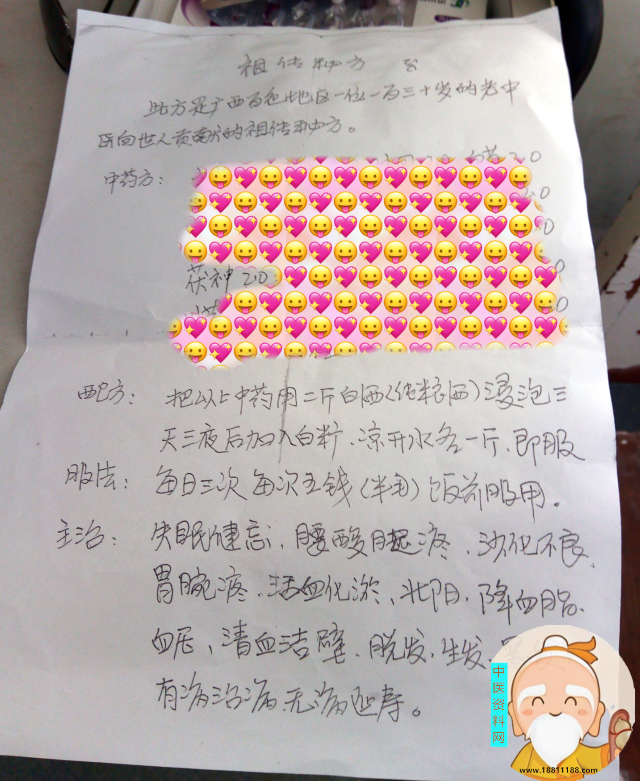 祖传秘方
此方是广西百色地区一位一百三十岁的老中
医向世人贡献的祖传秘方。
中药方:
20
茯神20
配方: 把以上中药用二斤白酒(纯粮酒)浸泡三
天三夜后加入白糖、凉开水各一斤,即服
服法: 每日三次 每次五钱(半两)饭前服用。
主治: 失眠健忘、腰酸腿疼、消化不良、
胃脘疼、活血化淤、壮阳、降血脂、
血压、清血洁壁、脱发、生发、
有病治病、无病延寿。
中医资料网
www.18811188.com